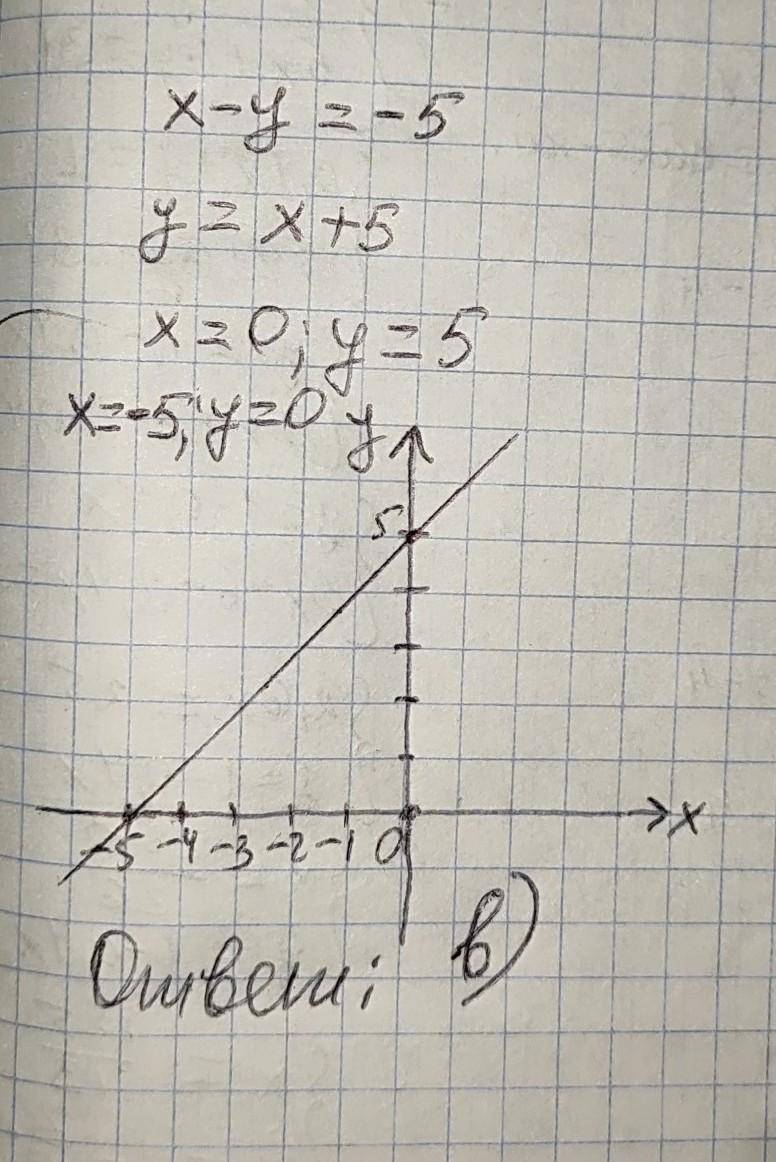 x-y=-5
y=x+5
x=0; y=5
x=-5; y=0
y
5
-5 -4 -3 -2 -1 0 x
Ответ: в)